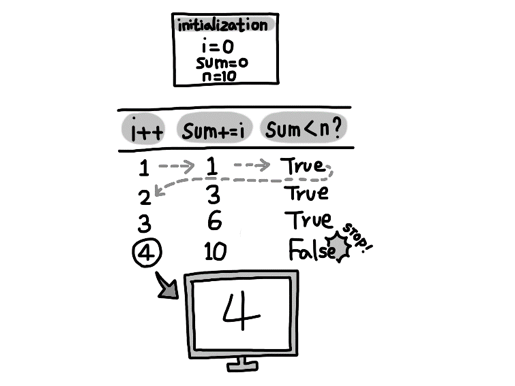 initialization
i=0
sum=0
n=10
i++ Sum+=i Sum<n?
1 1 True
2 3 True
3 6 True
4 10 False
STOP!
4